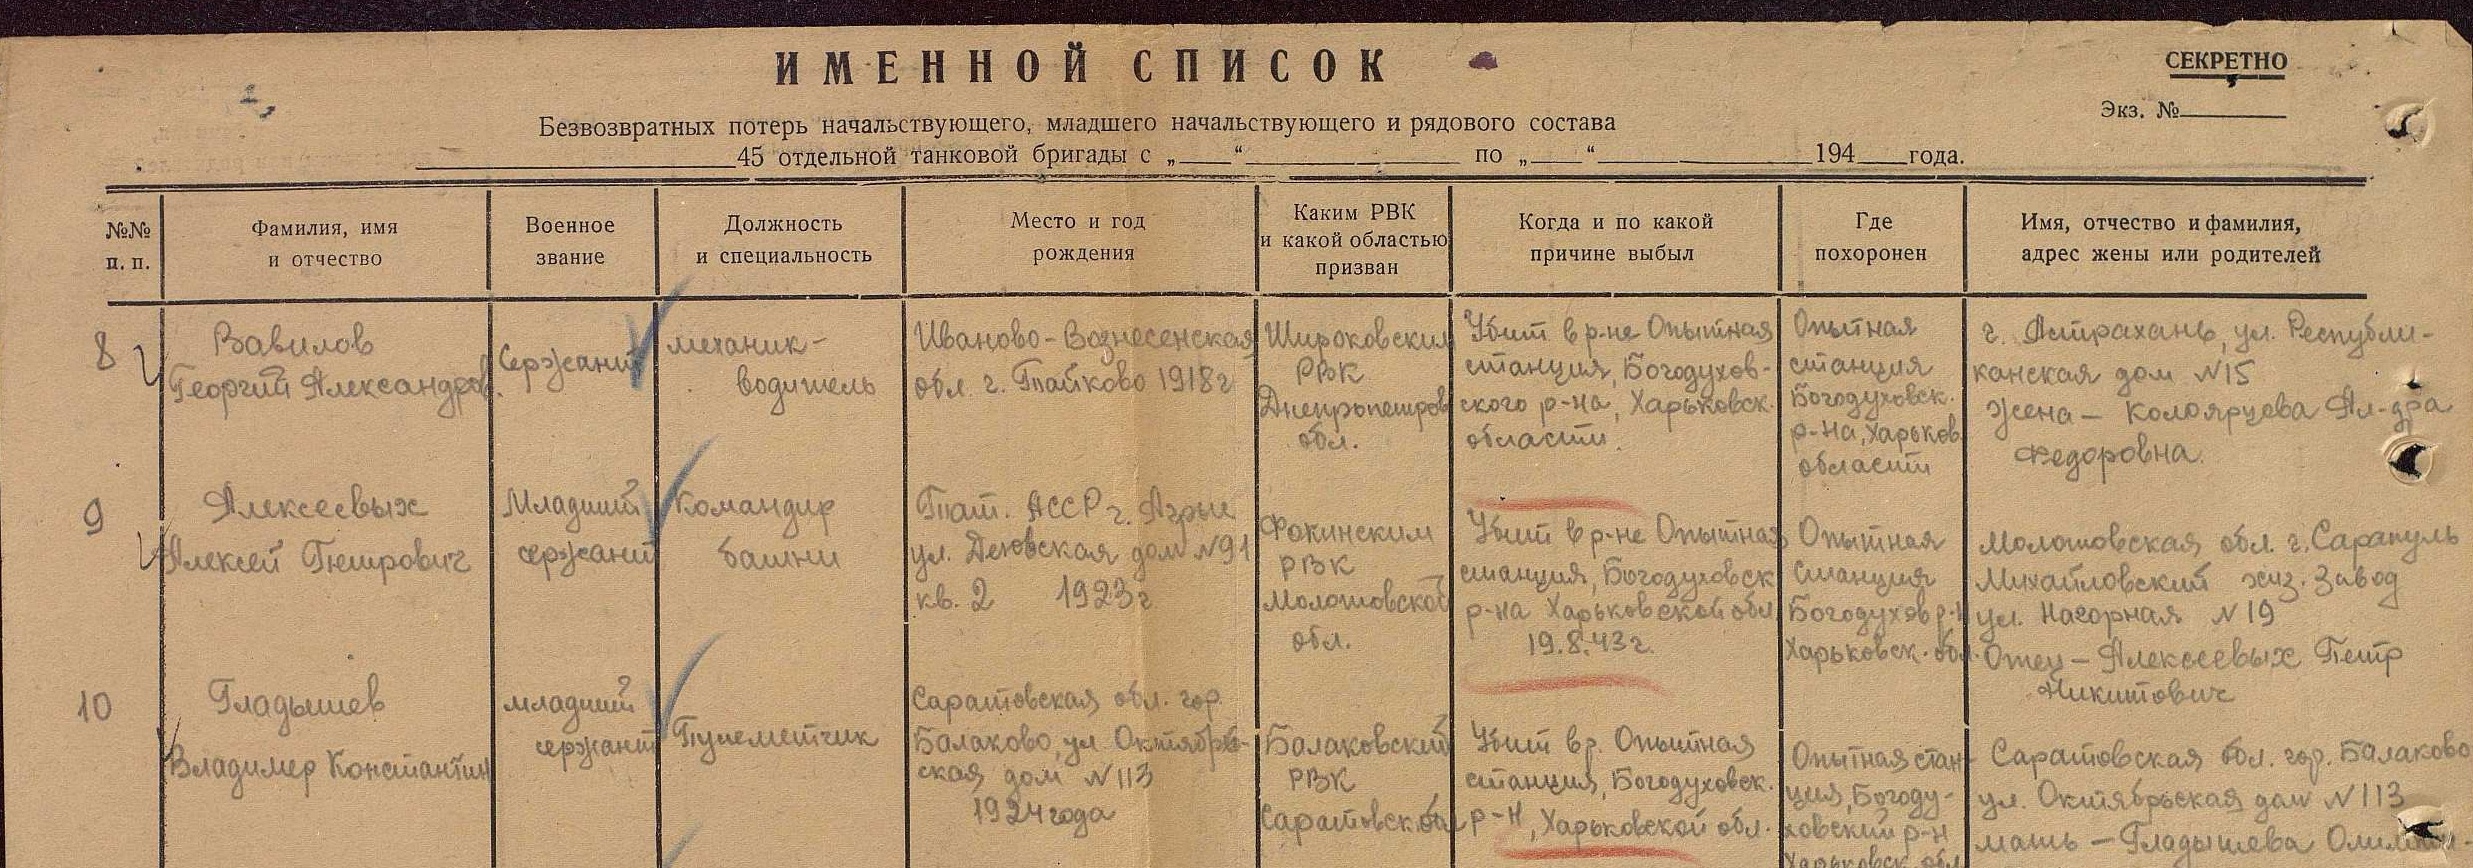 ИМЕННОЙ СПИСОК
СЕКРЕТНО
Экз. №
Безвозвратных потерь начальствующего, младшего начальствующего и рядового состава
45 отдельной танковой бригады с „ “ по „ “ 194 года.
№№
п. п.
Фамилия, имя
и отчество
Военное
звание
Должность
и специальность
Место и год
рождения
Каким РВК
и какой областью
призван
Когда и по какой
причине выбыл
Где
похоронен
Имя, отчество и фамилия,
адрес жены или родителей
8
Вавилов
Георгий Александров.
Сержант
механик-
водитель
Иваново-Вознесенская
обл. г. Тайково 1918г
Широковским
РВК
Днепропетров
обл.
Убит в р-не Опытная
станция, Богодухов-
ского р-на, Харьковск.
области.
Опытная
станция
Богодуховск.
р-на, Харьков.
области
г. Астрахань, ул. Республи-
канская дом №15
Жена - Колоярцева Ал-дра
Федоровна.
9
Алексеевых
Алексей Петрович
Младший
сержант
Командир
башни
Тат. АССР г. Агрыз
ул. дом №91
кв. 2 1923г
Фокинским
РВК
Молотовской
обл.
Убит в р-не Опытная
станция, Богодуховск
р-на Харьковской обл
19.8.43г.
Опытная
станция
Богодухов р-н
Харьковск. обл.
Молотовская обл. г. Сарапуль
Михайловский хиз. Завод
ул. Нагорная №19
Отец - Алексеевых Петр
Никитович
10
Гладышев
Владимир Константин
младший
сержант
Пулеметчик
Саратовская обл. гор.
Балаково, ул Октябрь-
ская дом №113
1924 года
Балаковский
РВК
Саратовск обл
Убит в р. Опытная
станция, Богодуховск.
р-н, Харьковской обл.
Опытная стан-
ция, Богоду-
ховский р-н
Харьковск. обл
Саратовская обл. гор. Балаково
ул. Октябрьская дом №113
мать - Гладышева